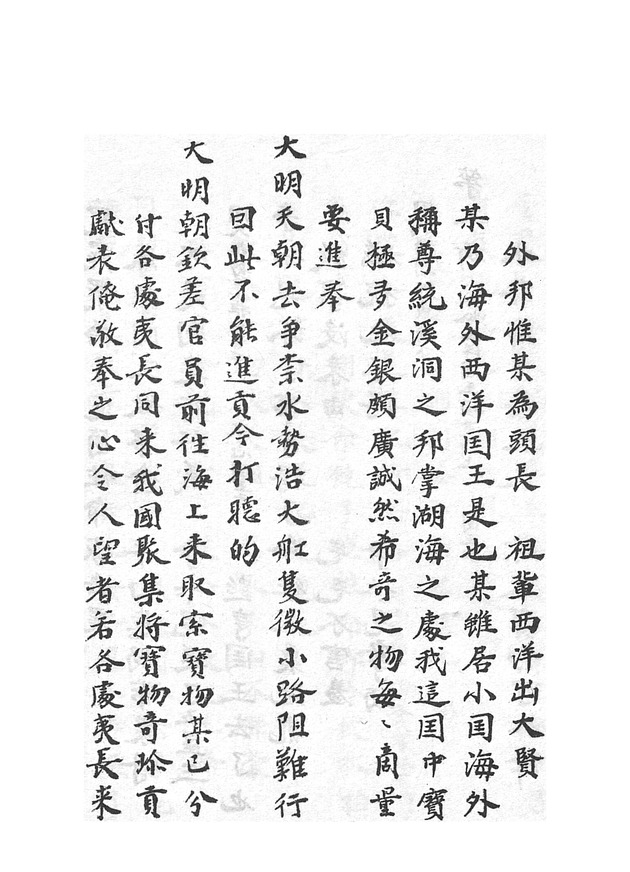 外邦惟某為頭長　祖輩西洋出大賢
某乃海外西洋囯王是也某雖居小囯海外
稱尊統溪洞之邦掌湖海之處我這囯中寶
貝極多金銀頗廣誠然希奇之物每〻商量
要進奉
大明天朝去爭柰水勢浩大舡隻微小路阻難行
回此不能進貢今打聽的
大明朝欽差官員前徃海上來取索寶物某已分
付各處夷長同来我國聚集将寶物奇珎貢
獻表俺敬奉之心令人望者若各處夷長来